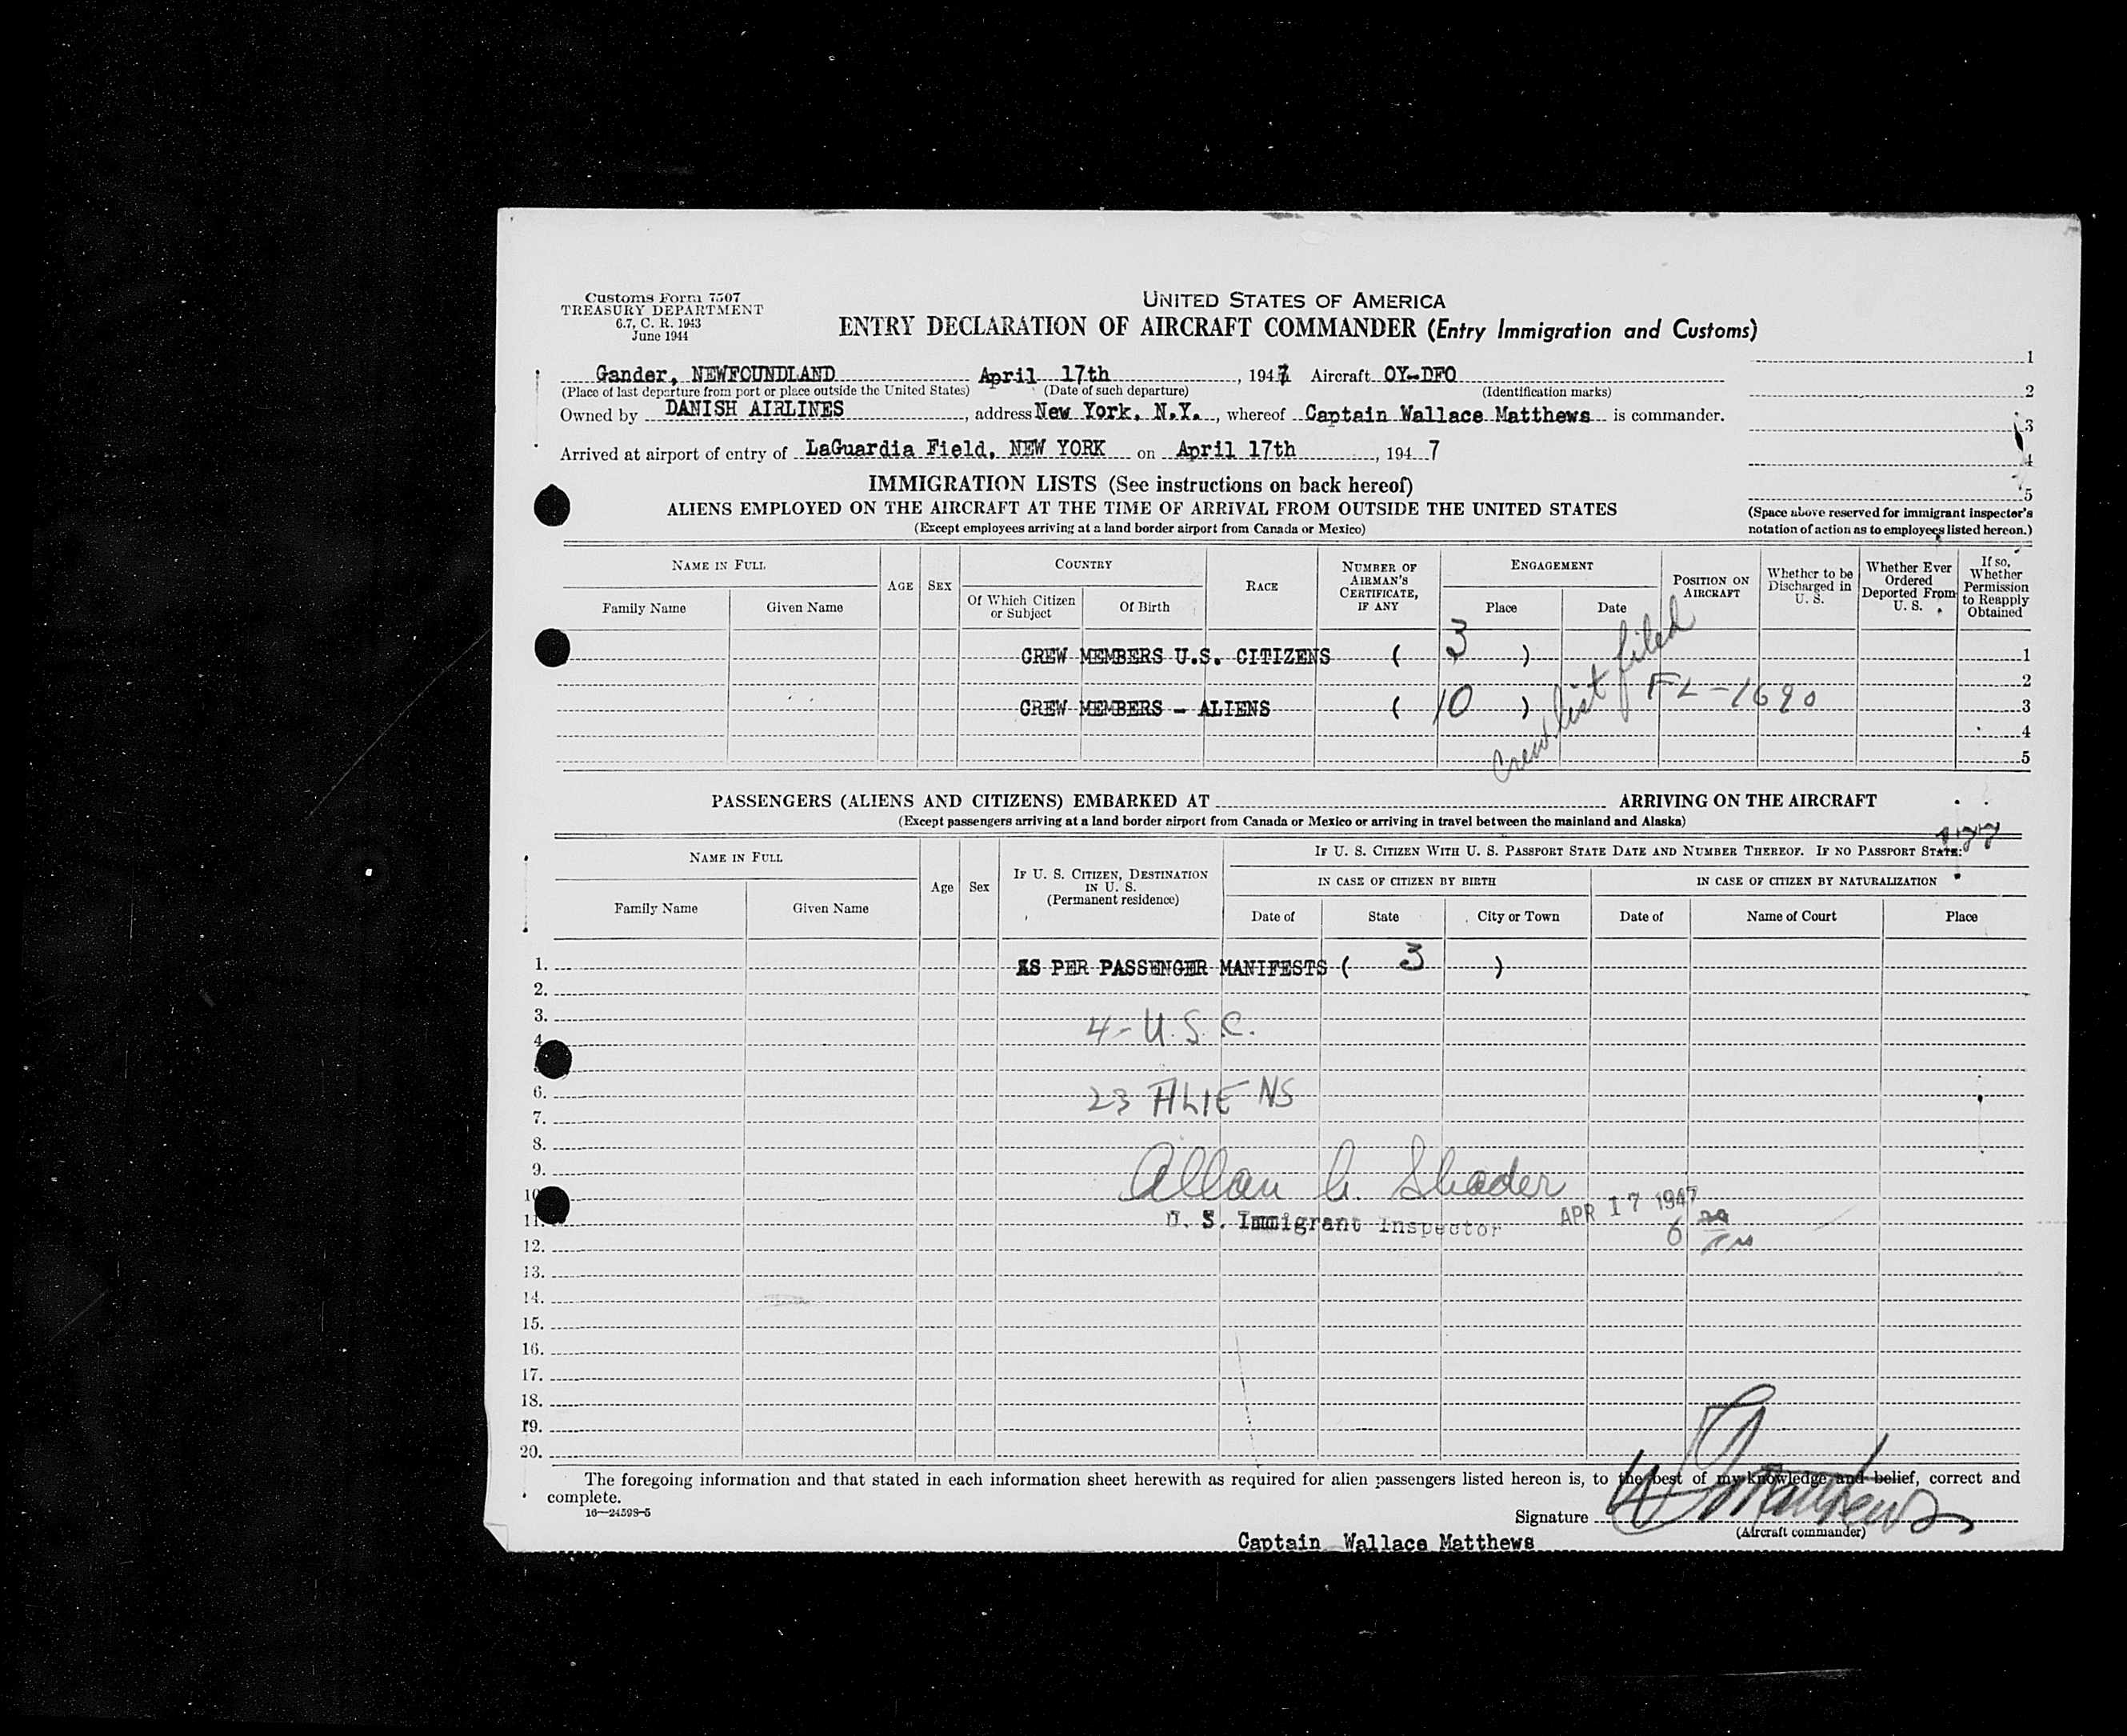 Customs Form 7507
TREASURY DEPARTMENT
6.7, C. R. 1943
June 1944
UNITED STATES OF AMERICA
ENTRY DECLARATION OF AIRCRAFT COMMANDER (Entry Immigration and Customs)
Gander, NEWFOUNDLAND April 17th, 1947 Aircraft OY-DFO
(Place of last departure from port or place outside the United States) (Date of such departure) (Identification marks)
Owned by DANISH AIRLINES, address New York, N.Y., whereof Captain Wallace Matthews is commander.
Arrived at airport of entry of LaGuardia Field, NEW YORK on April 17th, 1947
1
2
3
4
5
(Space above reserved for immigrant inspector's
notation of action as to employees listed hereon.)
IMMIGRATION LISTS (See instructions on back hereof)
ALIENS EMPLOYED ON THE AIRCRAFT AT THE TIME OF ARRIVAL FROM OUTSIDE THE UNITED STATES
(Except employees arriving at a land border airport from Canada or Mexico)
NAME IN FULL
Family Name Given Name
AGE SEX
COUNTRY
Of Which Citizen or Subject
Of Birth
RACE
NUMBER OF AIRMAN'S CERTIFICATE, IF ANY
ENGAGEMENT
Place Date
POSITION ON AIRCRAFT
Whether to be Discharged in U. S.
Whether Ever Ordered Deported From U. S.
If so, Whether Permission to Reapply Obtained
CREW MEMBERS U.S. CITIZENS ( 3 ) 1
2
CREW MEMBERS - ALIENS ( 10 ) 3
4
5
Crew list filed
FL-1690
PASSENGERS (ALIENS AND CITIZENS) EMBARKED AT ARRIVING ON THE AIRCRAFT
(Except passengers arriving at a land border airport from Canada or Mexico or arriving in travel between the mainland and Alaska)
NAME IN FULL
Family Name Given Name
Age Sex
IF U. S. CITIZEN, DESTINATION IN U. S.
(Permanent residence)
IF U. S. CITIZEN WITH U. S. PASSPORT STATE DATE AND NUMBER THEREOF. IF NO PASSPORT STATE:
IN CASE OF CITIZEN BY BIRTH IN CASE OF CITIZEN BY NATURALIZATION
Date of State City or Town Date of Name of Court Place
1. AS PER PASSENGER MANIFESTS ( 3 )
2.
3. 4-U.S.C.
4.
6. 23 ALIENS
7.
8.
9. Allan G. Shader
10
11. U. S. Immigrant Inspector APR 17 1947
12. 6
13.
14.
15.
16.
17.
18.
19.
20.
The foregoing information and that stated in each information sheet herewith as required for alien passengers listed hereon is, to the best of my knowledge and belief, correct and
complete.
16—24598-5
Signature W Matthews
(Aircraft commander)
Captain Wallace Matthews